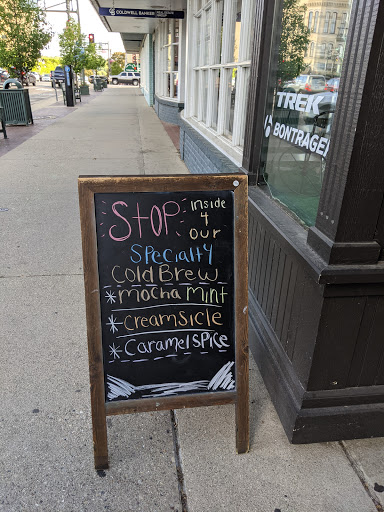 COLDWELL BANKER
TREK
BONTRAGER
STOP inside
4
our
Specialty
Cold Brew
*mocha Mint
*Creamsicle
*Caramel SPice